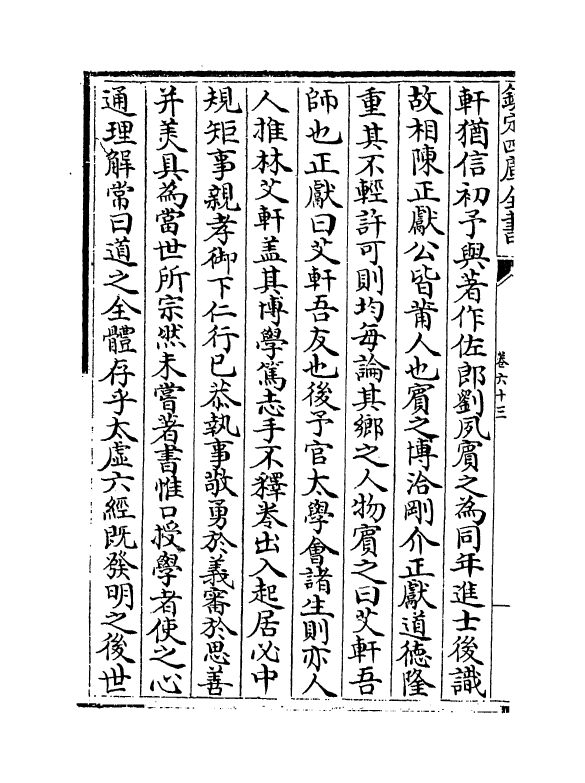 欽定四庫全書
卷六十三
軒猶信初予與著作佐郎劉夙賓之為同年進士後識
故相陳正獻公皆莆人也賓之博洽剛介正獻道德隆
重其不輕許可則均每論其鄉之人物賓之曰艾軒吾
師也正獻曰艾軒吾友也後予官太學會諸生則亦人
人推林艾軒盖其博學篤志手不釋卷出入起居必中
規矩事親孝御下仁行已恭執事敬勇於義審於思善
并美具為當世所宗然未嘗著書惟口授學者使之心
通理解常曰道之全體存乎太虚六經既發明之後世